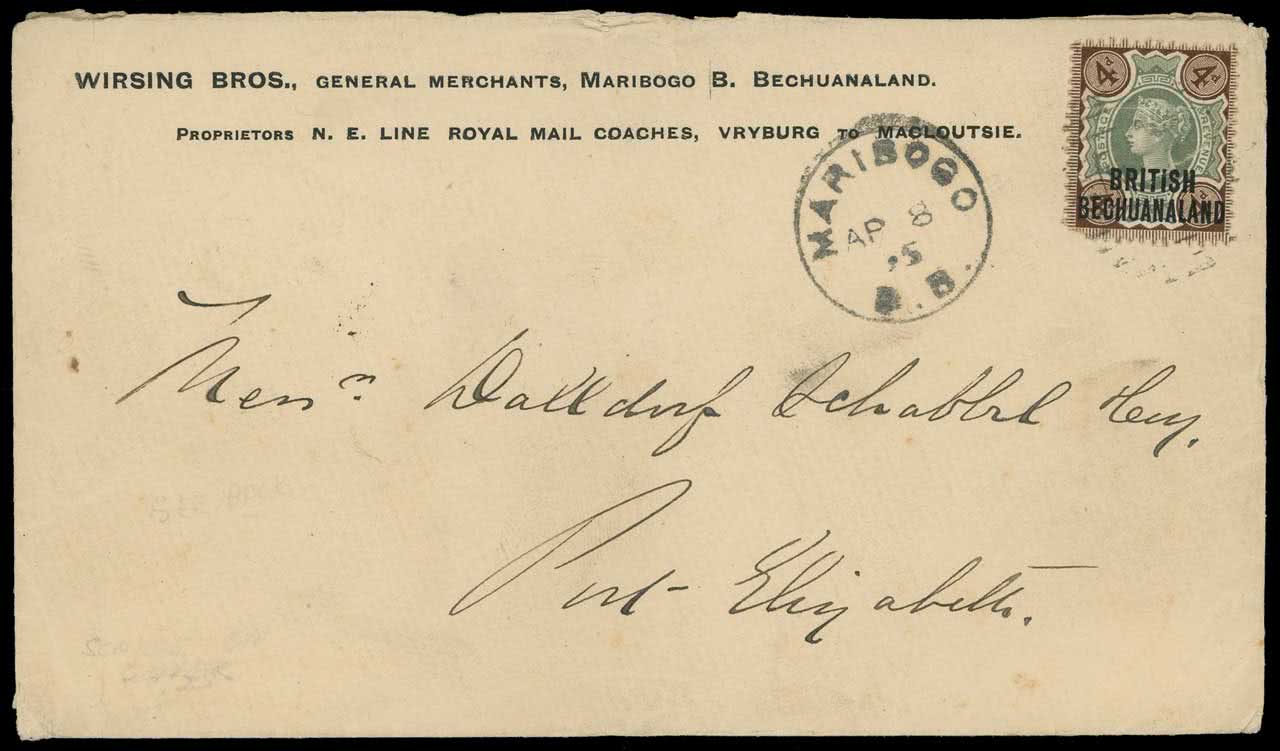 WIRSING BROS., GENERAL MERCHANTS, MARIBOGO B. BECHUANALAND.
PROPRIETORS N. E. LINE ROYAL MAIL COACHES, VRYBURG TO MACLOUTSIE.
4d 4d
POSTAGE & REVENUE
BRITISH
BECHUANALAND
MARIBOGO
AP 8
95
B.B.
Messrs Dalldorf Schabbel Hy.
Port Elizabeth.
SEE BACK